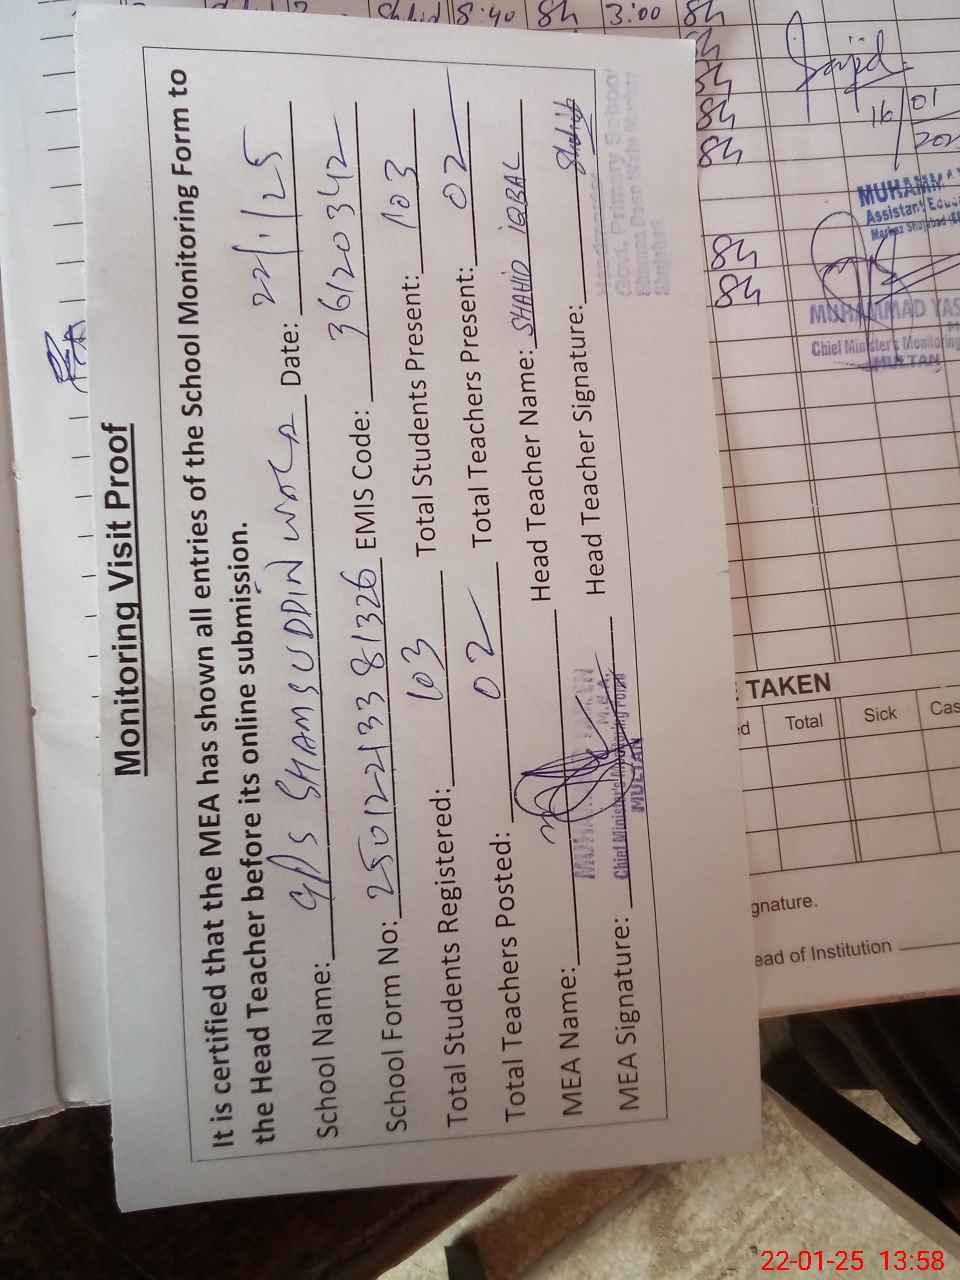 Monitoring Visit Proof
It is certified that the MEA has shown all entries of the School Monitoring Form to
the Head Teacher before its online submission.
School Name: GPS SHAMSUDDIN WALA Date: 22/1/25
School Form No: 2501221338 1326 EMIS Code: 36120342
Total Students Registered: 103 Total Students Present: 103
Total Teachers Posted: 02 Total Teachers Present: 02
MEA Name: Head Teacher Name: SHAHID IQBAL
MEA Signature: Head Teacher Signature: Shahid
Chief Minister's Monitoring Force
MULTAN
Govt. Primary School
8:40 Sh 3:00 Sh
Sh
Sh
Sh
Sh
Sh
Sh
Sajid
16/01
MUHAMMA
Assistant Educ
MUHAMMAD YAS
Chief Minister's Monitoring
MULTAN
TAKEN
ed Total Sick Cas
gnature.
ead of Institution
22-01-25 13:58